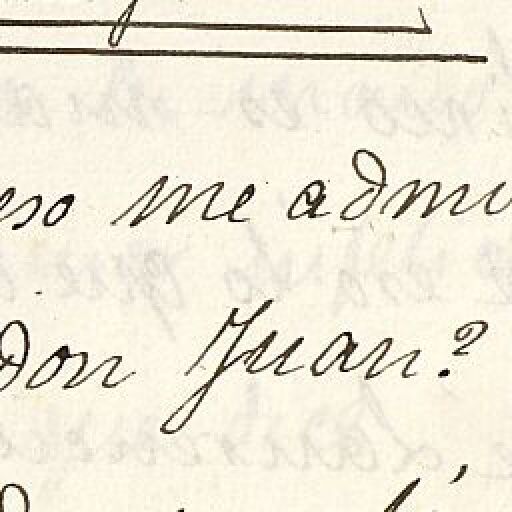 eso me admi
don Juan?